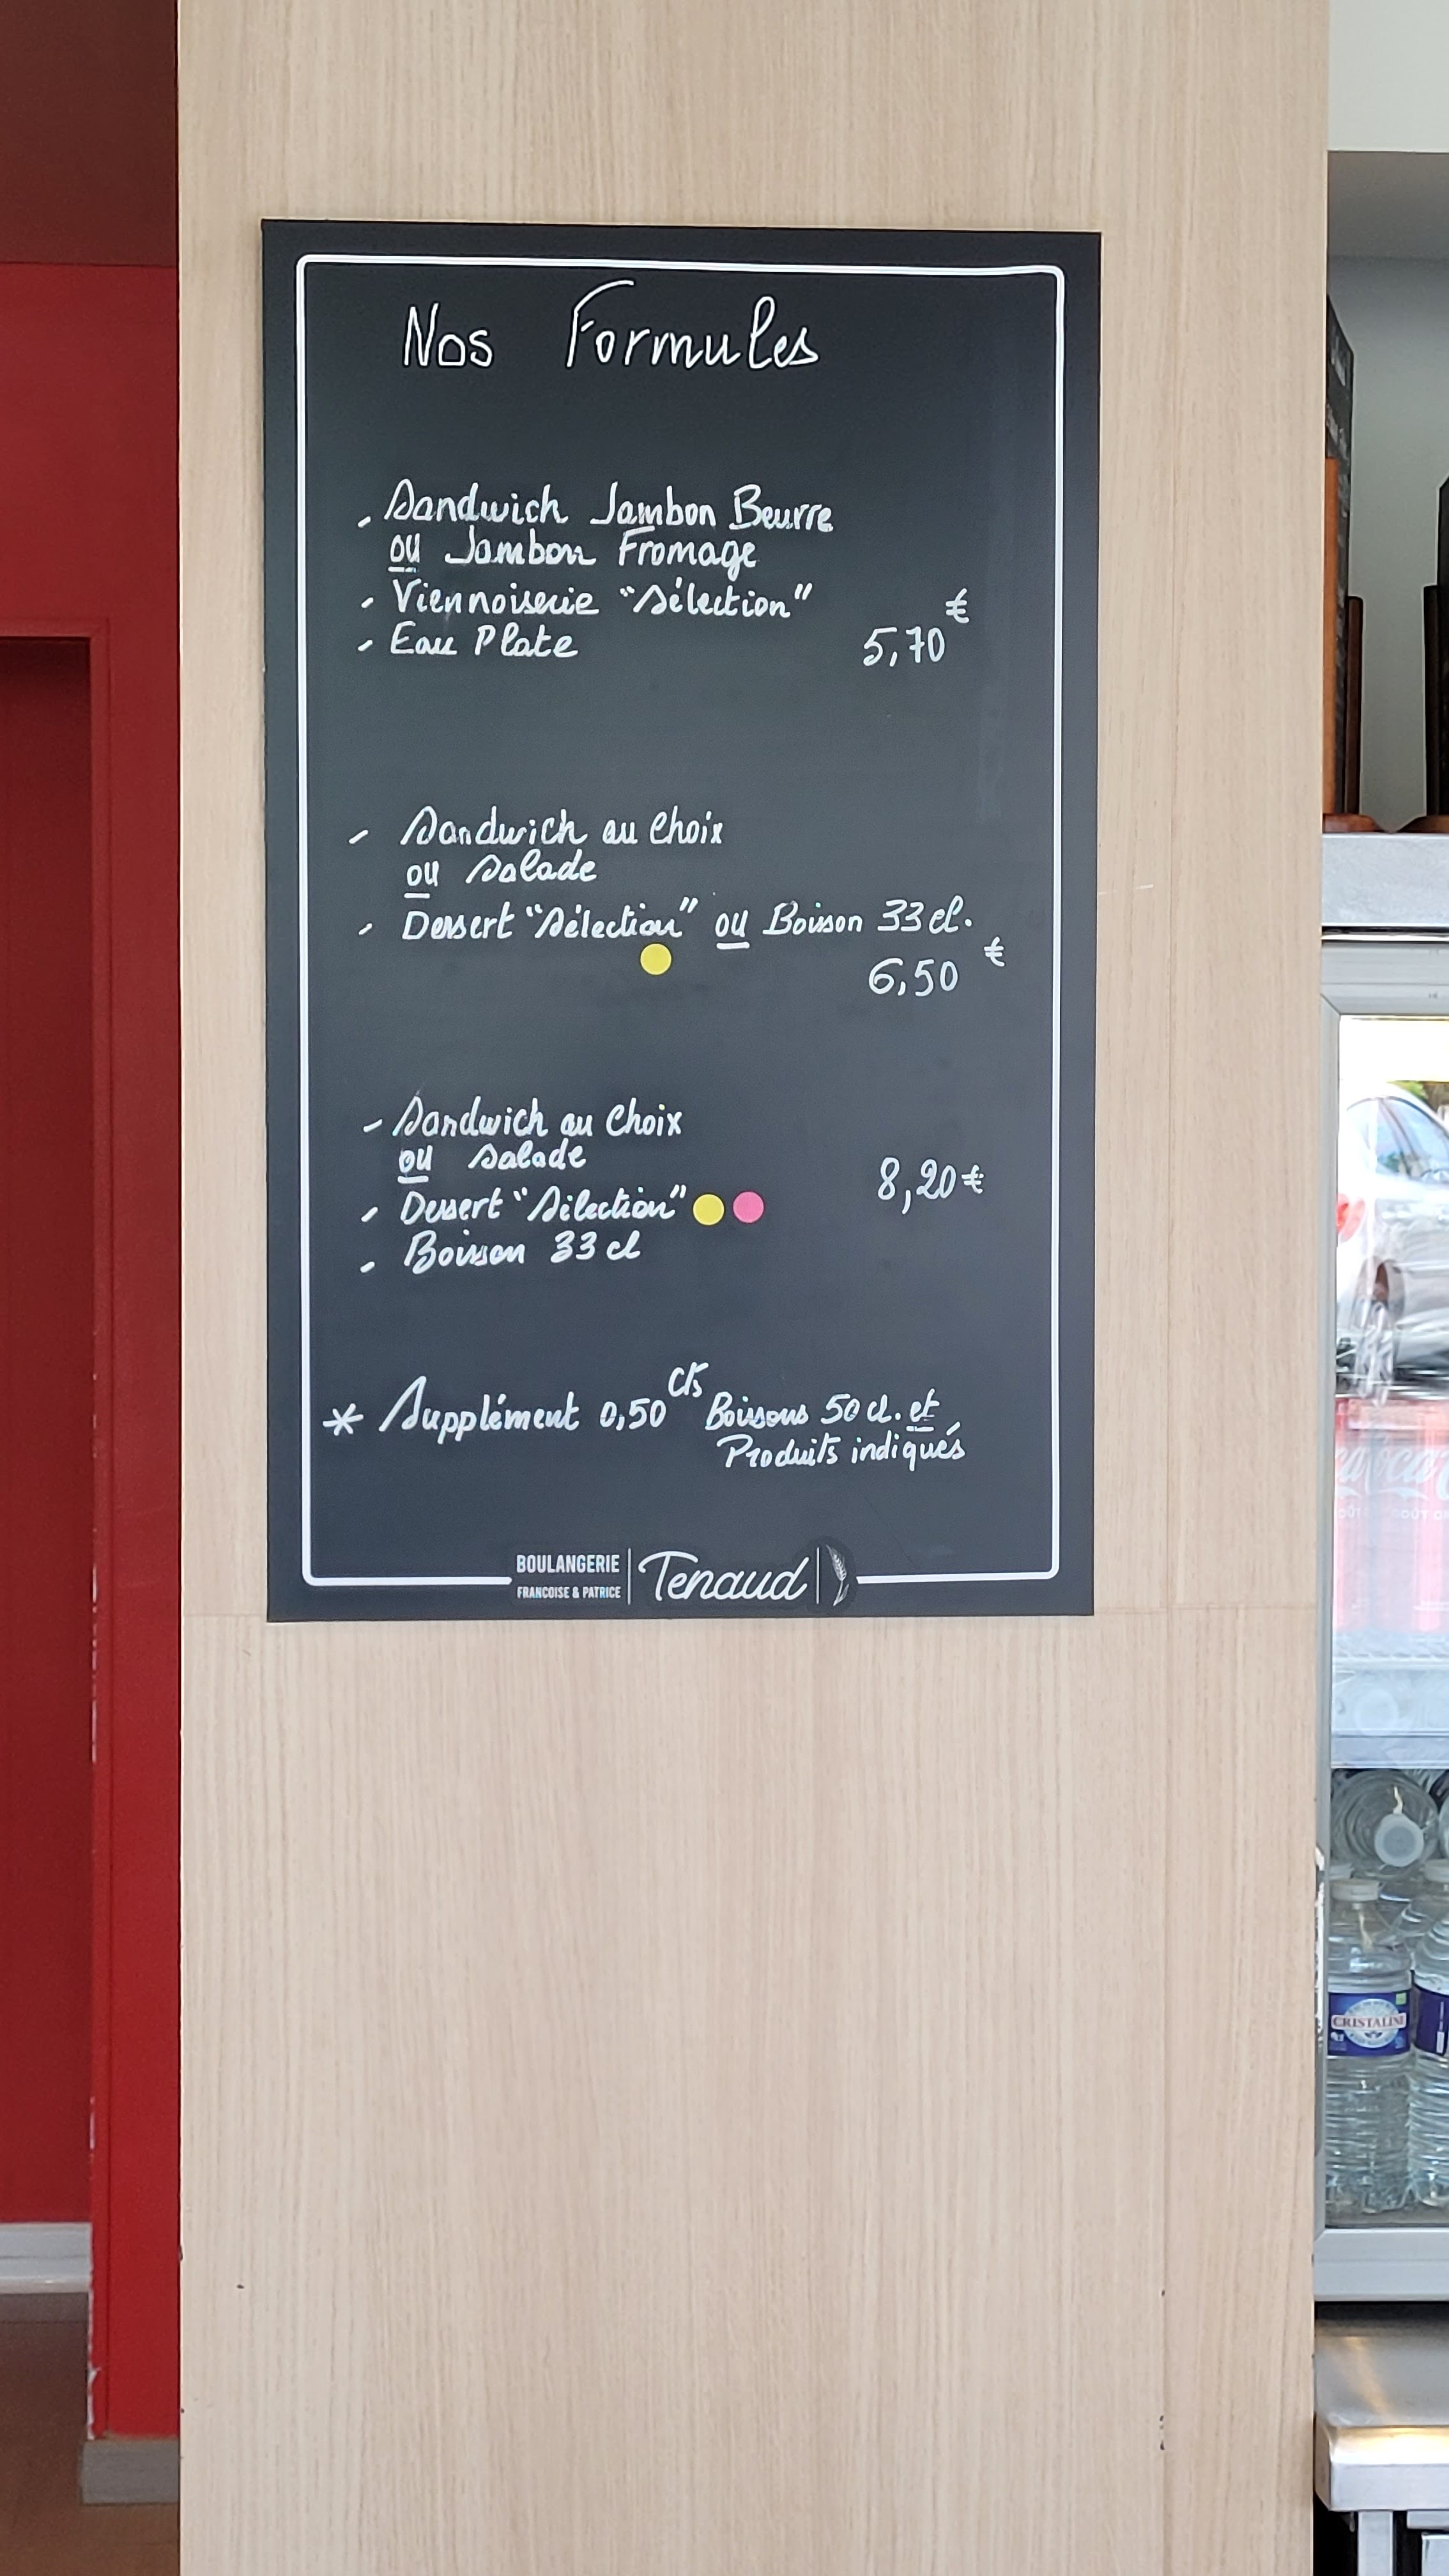 Nos Formules
- Sandwich Jambon Beurre
ou Jambon Fromage
- Viennoiserie "Sélection"
- Eau Plate 5,70 €
- Sandwich au Choix
ou Salade
- Dessert "Sélection" ou Boisson 33 cl.
6,50 €
- Sandwich au Choix
ou Salade
8,20 €
- Dessert "Sélection"
- Boisson 33 cl
* Supplément 0,50 cts Boissons 50 cl. et
Produits indiqués
BOULANGERIE
FRANCOISE & PATRICE
Tenaud
CRISTALINE